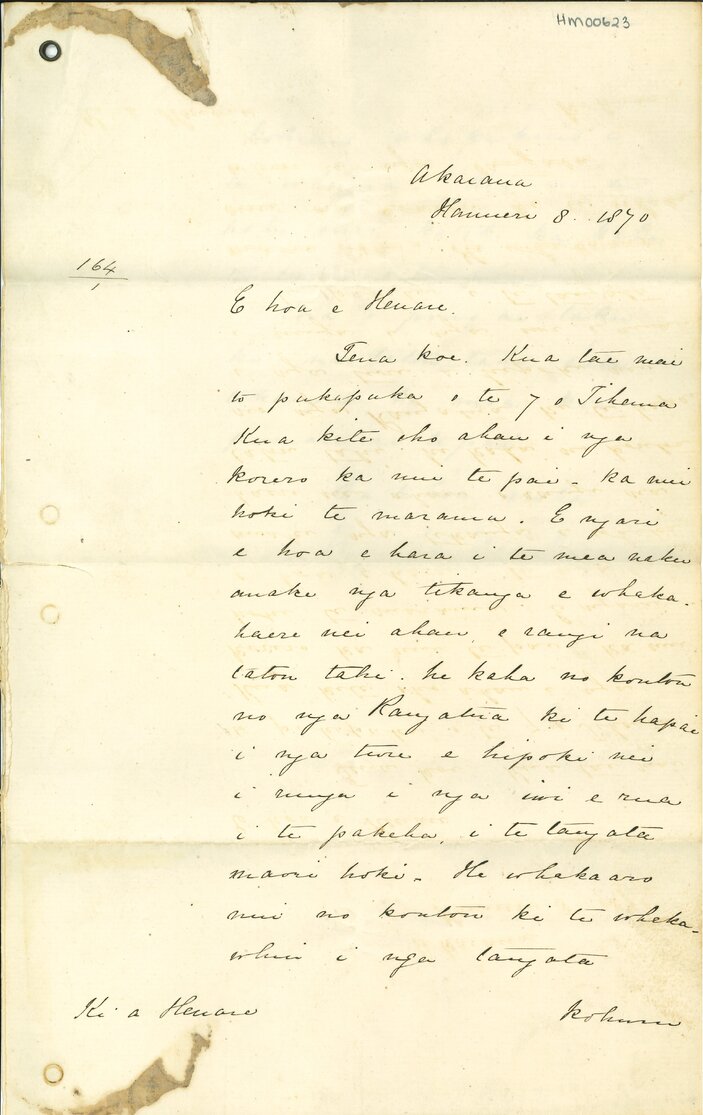 HM00623
Akarana
Hanueri 8. 1870
164
1
E hoa e Henare.
Tena koe. Kua tae mai
to pukapuka o te 7 o Tihema
Kua kite iho ahau i nga
korero ka nui te pai - ka nui
hoki te marama. E ngari
e hoa e hara i te mea naku
anake nga tikanga e whaka-
haere nei ahau, e rangi na
tatou tahi. he kaha no koutou
no nga Rangatira ki te hapai
i nga ture e hipoki nei
i runga i nga iwi e rua
i te pakeha, i te tangata
maori hoki - He whakaaro
nui no koutou ki te whaka-
whiu i nga tangata
Ki a Henare
kohuru